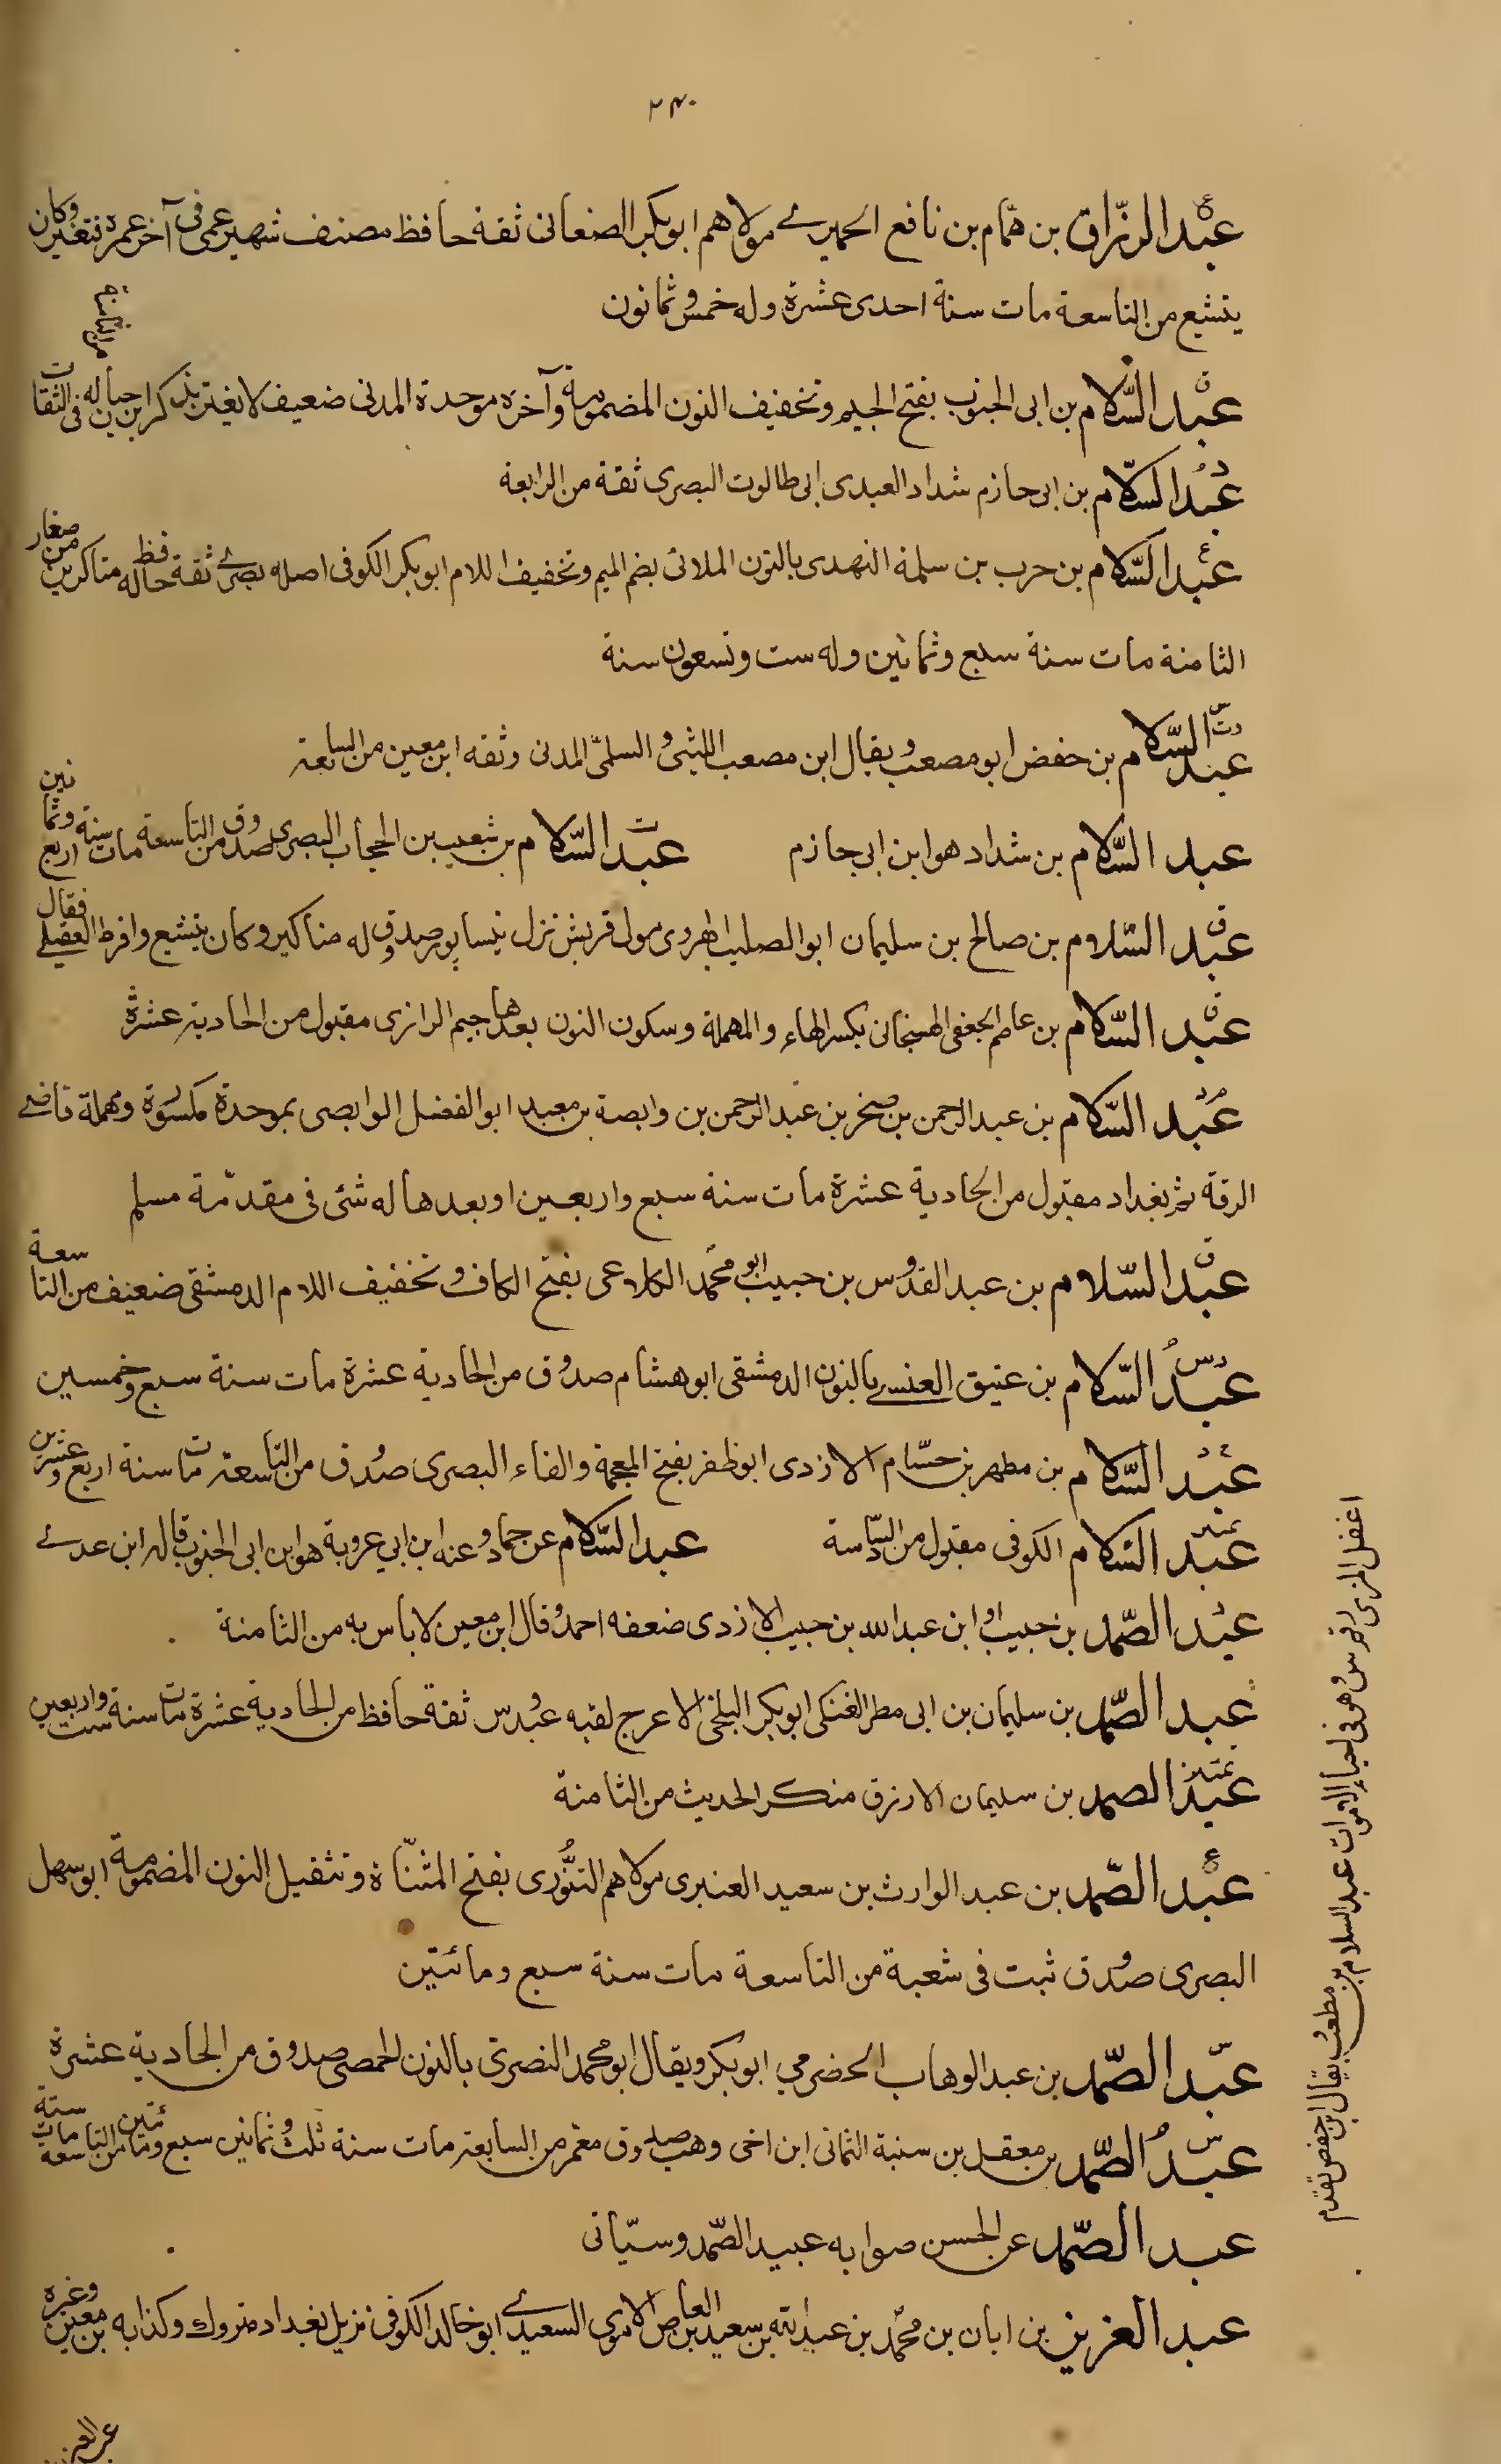 ٢٣٠
عبد الرزاق بن همام بن نافع الحميرى مولاهم ابو بكر الصنعانى ثقة حافظ مصنف شهير عمى فى آخر عمره فتغير وكان
يتشيع من التاسعة مات سنة احدى عشرة وله خمس وثمانون
عبد السلام بن ابى الجنوب بفتح الجيم وتخفيف النون المضمومة وآخره موحدة المدنى ضعيف لا يغتر بذكر ابن حبان له فى الثقات من الثامنة
عبد السلام بن ابى حازم شداد العبدى ابى طالوت البصرى ثقة من الرابعة
عبد السلام بن حرب بن سلمة النهدى بالنون الملائى بضم الميم وتخفيف اللام ابو بكر الكوفى اصله بصرى ثقة حافظ له مناكير من صغار
الثامنة مات سنة سبع وثمانين وله ست وتسعون سنة
عبد السلام بن حفص ابو مصعب ويقال ابن مصعب الليثى او السلمى المدنى وثقه ابن معين من السابعة
عبد السلام بن شداد هو ابن ابى حازم عبد السلام بن شعيب بن الحبحاب البصرى صدوق من التاسعة مات سنة اربع وثمانين
عبد السلام بن صالح بن سليمان ابو الصلت الهروى مولى قريش نزل نيسابور صدوق له مناكير وكان يتشيع وافرط العقيلى فقال
عبد السلام بن عاصم الجعفى الهسنجانى بكسر الهاء والمهملة وسكون النون بعدها جيم الرازى مقبول من الحادية عشرة
عبد السلام بن عبد الرحمن بن صخر بن عبد الرحمن بن وابصة بن معبد ابو الفضل الوابصى بموحدة مكسورة ومهملة قاضى
الرقة ثم بغداد مقبول من الحادية عشرة مات سنة سبع واربعين او بعدها له شئ فى مقدمة مسلم
عبد السلام بن عبد القدوس بن حبيب ابو محمد الكلاعى بفتح الكاف وتخفيف اللام الدمشقى ضعيف من التاسعة
عبد السلام بن عتيق العنسى بالنون الدمشقى ابو هشام صدوق من الحادية عشرة مات سنة سبع وخمسين
عبد السلام بن مطهر بن حسام الازدى ابو ظفر بفتح المعجمة والفاء البصرى صدوق من التاسعة مات سنة اربع وعشرين
عبد السلام الكوفى مقبول من السادسة عبد السلام عن حماد وعنه ابن ابي عروبة هو ابن ابى الجنوب قاله ابن عدى
عبد الصمد بن حبيب او ابن عبد الله بن حبيب الازدى ضعفه احمد وقال ابن معين لا باس به من الثامنة
عبد الصمد بن سليمان بن ابى مطر العتكى ابو بكر البلخى الاعرج لقبه عبدوس ثقة حافظ من الحادية عشرة مات سنة ست واربعين
عبد الصمد بن سليمان الازرق منكر الحديث من الثامنة
عبد الصمد بن عبد الوارث بن سعيد العنبرى مولاهم التنورى بفتح المثناة وتثقيل النون المضمومة ابو سهل
البصرى صدوق ثبت فى شعبة من التاسعة مات سنة سبع ومائتين
عبد الصمد بن عبد الوهاب الحضرمي ابو بكر ويقال ابو محمد النصرى بالنون الحمصى صدوق من الحادية عشرة
عبد الصمد بن معقل بن منبه اليمانى ابن اخى وهب صدوق معمر من السابعة مات سنة ثلث وثمانين
عبد الصمد عن الحسن صوابه عبيد الصمد وسيأتى
عبد العزيز بن ابان بن محمد بن عبد الله بن سعيد بن العاص الاموي السعيدى ابو خالد الكوفى نزيل بغداد متروك وكذبه بن معين وغيره
عبد العزيز
اغفل المزى وهو فى عبد السلام بن مصعب يقال ابن حفص تقدم